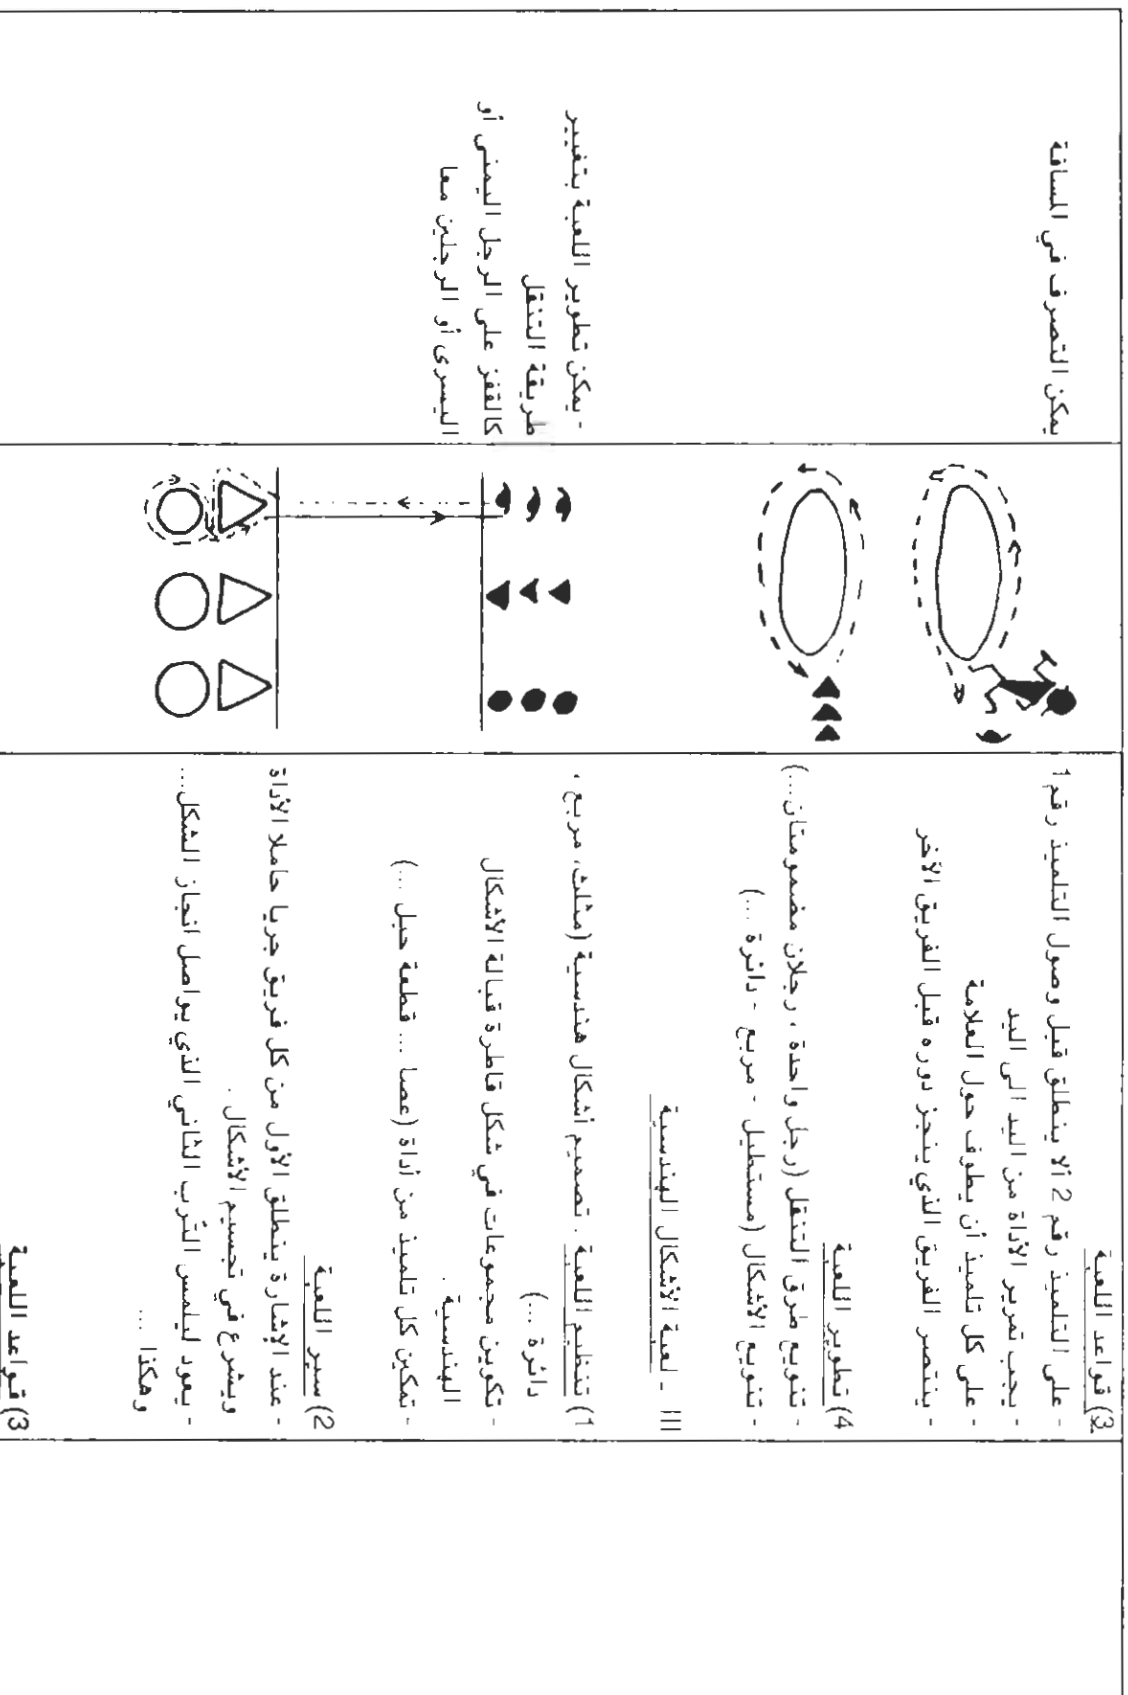 3) قواعد اللعبة
- على التلميذ رقم 2 ألا ينطلق قبل وصول التلميذ رقم 1
- يجب تمرير الأداة من اليد الى اليد
- على كل تلميذ أن يطوف حول العلامة
- ينتصر الفريق الذي ينجز دوره قبل الفريق الآخر
4) تطوير اللعبة
- تنويع طرق التنقل (رجل واحدة ، رجلان مضمومتان...)
- تنويع الأشكال (مستطيل - مربع - دائرة ...)
III - لعبة الأشكال الهندسية
1) تنظيم اللعبة . تصميم أشكال هندسية (مثلث، مربع ،
دائرة ...)
- تكوين مجموعات في شكل قاطرة قبالة الأشكال
الهندسية .
- تمكين كل تلميذ من أداة (عصا ... قطعة حبل ...)
2) سير اللعبة
- عند الإشارة ينطلق الأول من كل فريق جريا حاملا الأداة
ويشرع في تجسيم الأشكال .
- يعود ليلمس التّرب الثاني الذي يواصل انجاز الشكل...
وهكذا ...
3) قواعد اللعبة
يمكن التصرف في المسافة
- يمكن تطوير اللعبة بتغيير
طريقة التنقل
كالقفز على الرجل اليمنى أو
اليسرى أو الرجلين معا